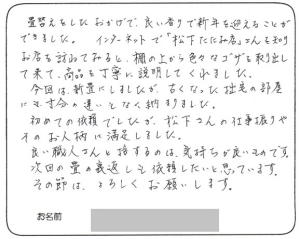 畳替えをしたおかげで、良い香りで新年を迎えることが
できました。 インターネットで「松下たたみ店」さんを知り
お店を訪ねてみると、棚の上から色々なゴザを取り出し
て来て、商品を丁寧に説明してくれました。
今回は、新畳にしましたが、古くなった拙宅の部屋
にも寸分の違いもなく納まりました。
初めての依頼でしたが、松下さんの仕事振りや
そのお人柄に満足しました。
良い職人さんと接するのは、気持ちが良いものです。
次回の畳の裏返しも依頼したいと思っています。
その節は、よろしくお願いします。
お名前